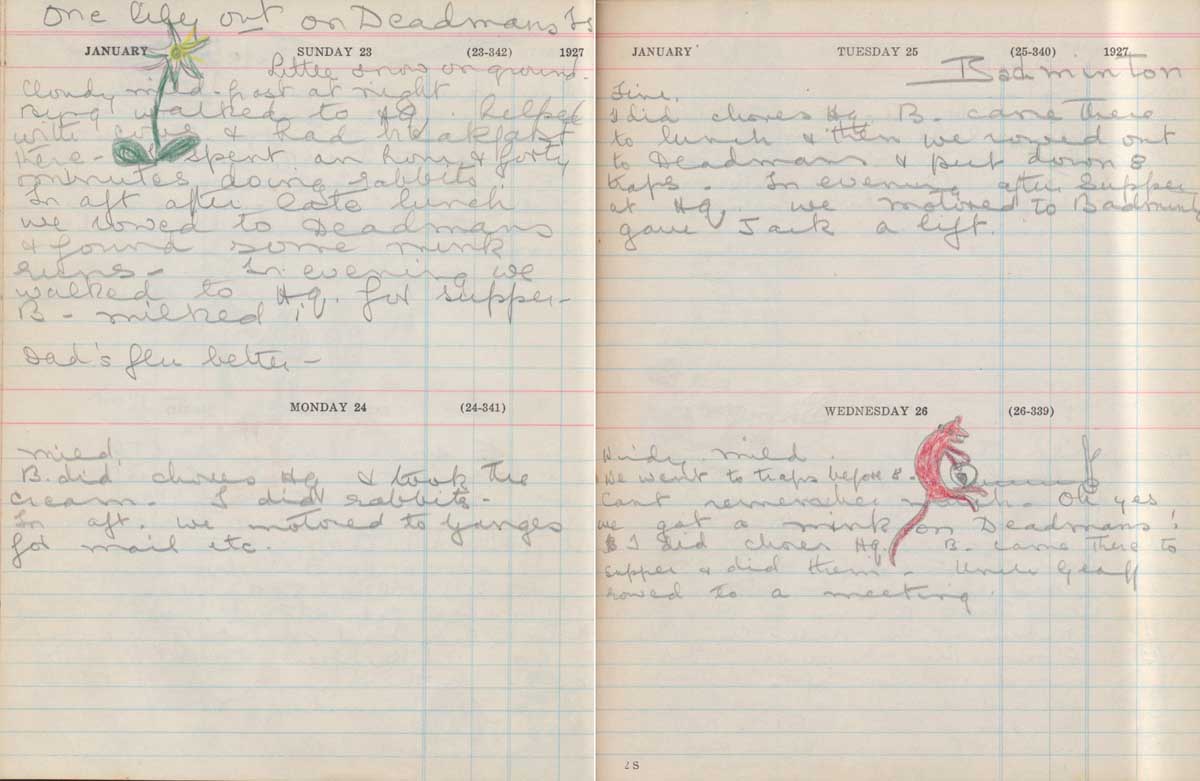 One lily out on Deadmans Is
JANUARY SUNDAY 23 (23-342) 1927
Little snow on ground.
Cloudy mild - frost at night
walked to Hq. helped
with & had breakfast
there - spent an hour & forty
minutes doing rabbits
In aft after late lunch
we rowed to Deadmans
& found some mink
runs - In evening we
walked to Hq. for supper -
B - milked !
Dad's flu better -
MONDAY 24 (24-341)
mild.
B. did chores Hq & took the
cream - I did rabbits -
In aft. we motored to Ganges
for mail etc.
JANUARY TUESDAY 25 (25-340) 1927
Badminton
Fine.
I did chores Hq. B. came there
to lunch & then we rowed out
to Deadmans & put down 8
traps. In evening after supper
at Hq. we motored to Badmint
gave Jack a lift.
WEDNESDAY 26 (26-339)
Windy, mild.
We went to traps before 8 -
Cant remember much - Oh yes
we got a mink on Deadmans!
I did chores Hq. B. came there to
supper & did them - Uncle Geoff
rowed to a meeting